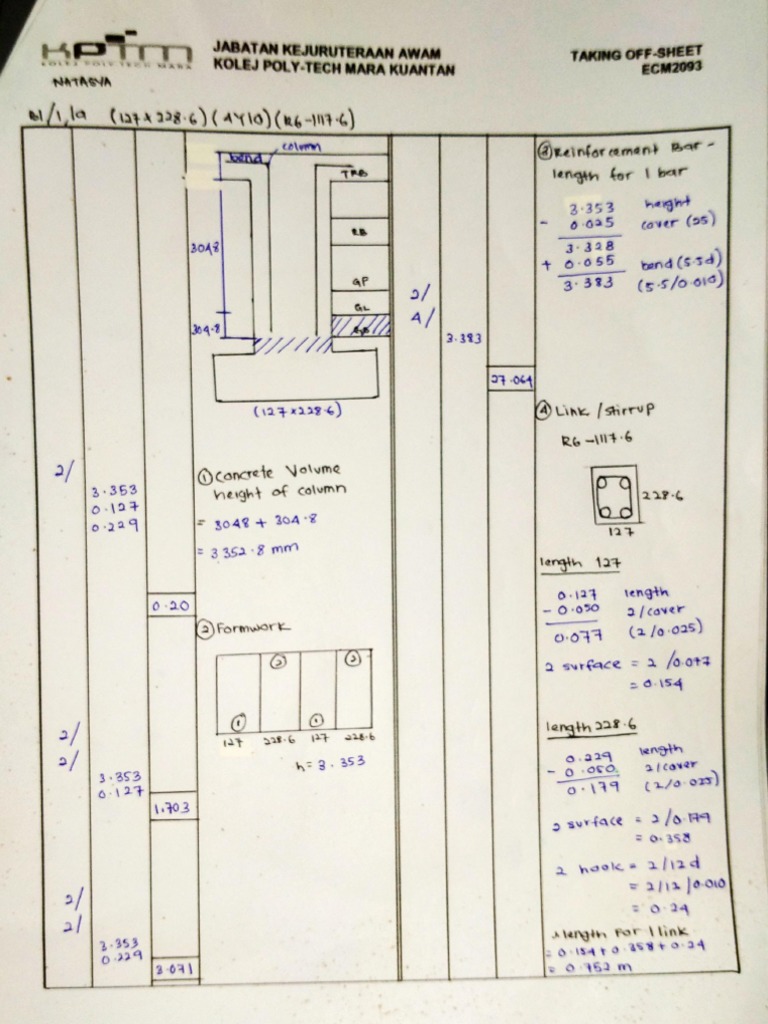 KPTM
KOLEJ POLY-TECH MARA
JABATAN KEJURUTERAAN AWAM
KOLEJ POLY-TECH MARA KUANTAN
TAKING OFF-SHEET
ECM2093
NATASYA
B1/1,1a (127 x 228.6) (4Y10) (R6-1117.6)
column
bend
TRB
RB
3048
GF
GL
304.8
GB
(127 x 228.6)
2/
3.353
0.127
0.229
0.20
① Concrete Volume
height of column
= 3048 + 304.8
= 3352.8 mm
② Formwork
② ②
① ①
127 228.6 127 228.6
h = 3.353
2/
2/
3.353
0.127
1.703
2/
2/
3.353
0.229
3.071
2/
4/
3.383
27.064
③ Reinforcement Bar -
length for 1 bar
3.353 height
- 0.025 cover (25)
3.328
+ 0.055 bend (5.5d)
3.383 (5.5/0.010)
④ Link / stirrup
R6 - 1117.6
228.6
127
length 127
0.127 length
- 0.050 2/cover
0.077 (2/0.025)
2 surface = 2/0.077
= 0.154
length 228.6
0.229 length
- 0.050 2/cover
0.179 (2/0.025)
2 surface = 2/0.179
= 0.358
2 hook = 2/12d
= 2/12/0.010
= 0.24
∴ length for 1 link
= 0.154 + 0.358 + 0.24
= 0.752 m